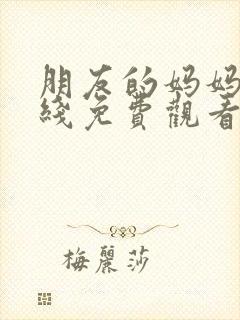 朋友的妈妈
綫免費觀看
梅麗莎